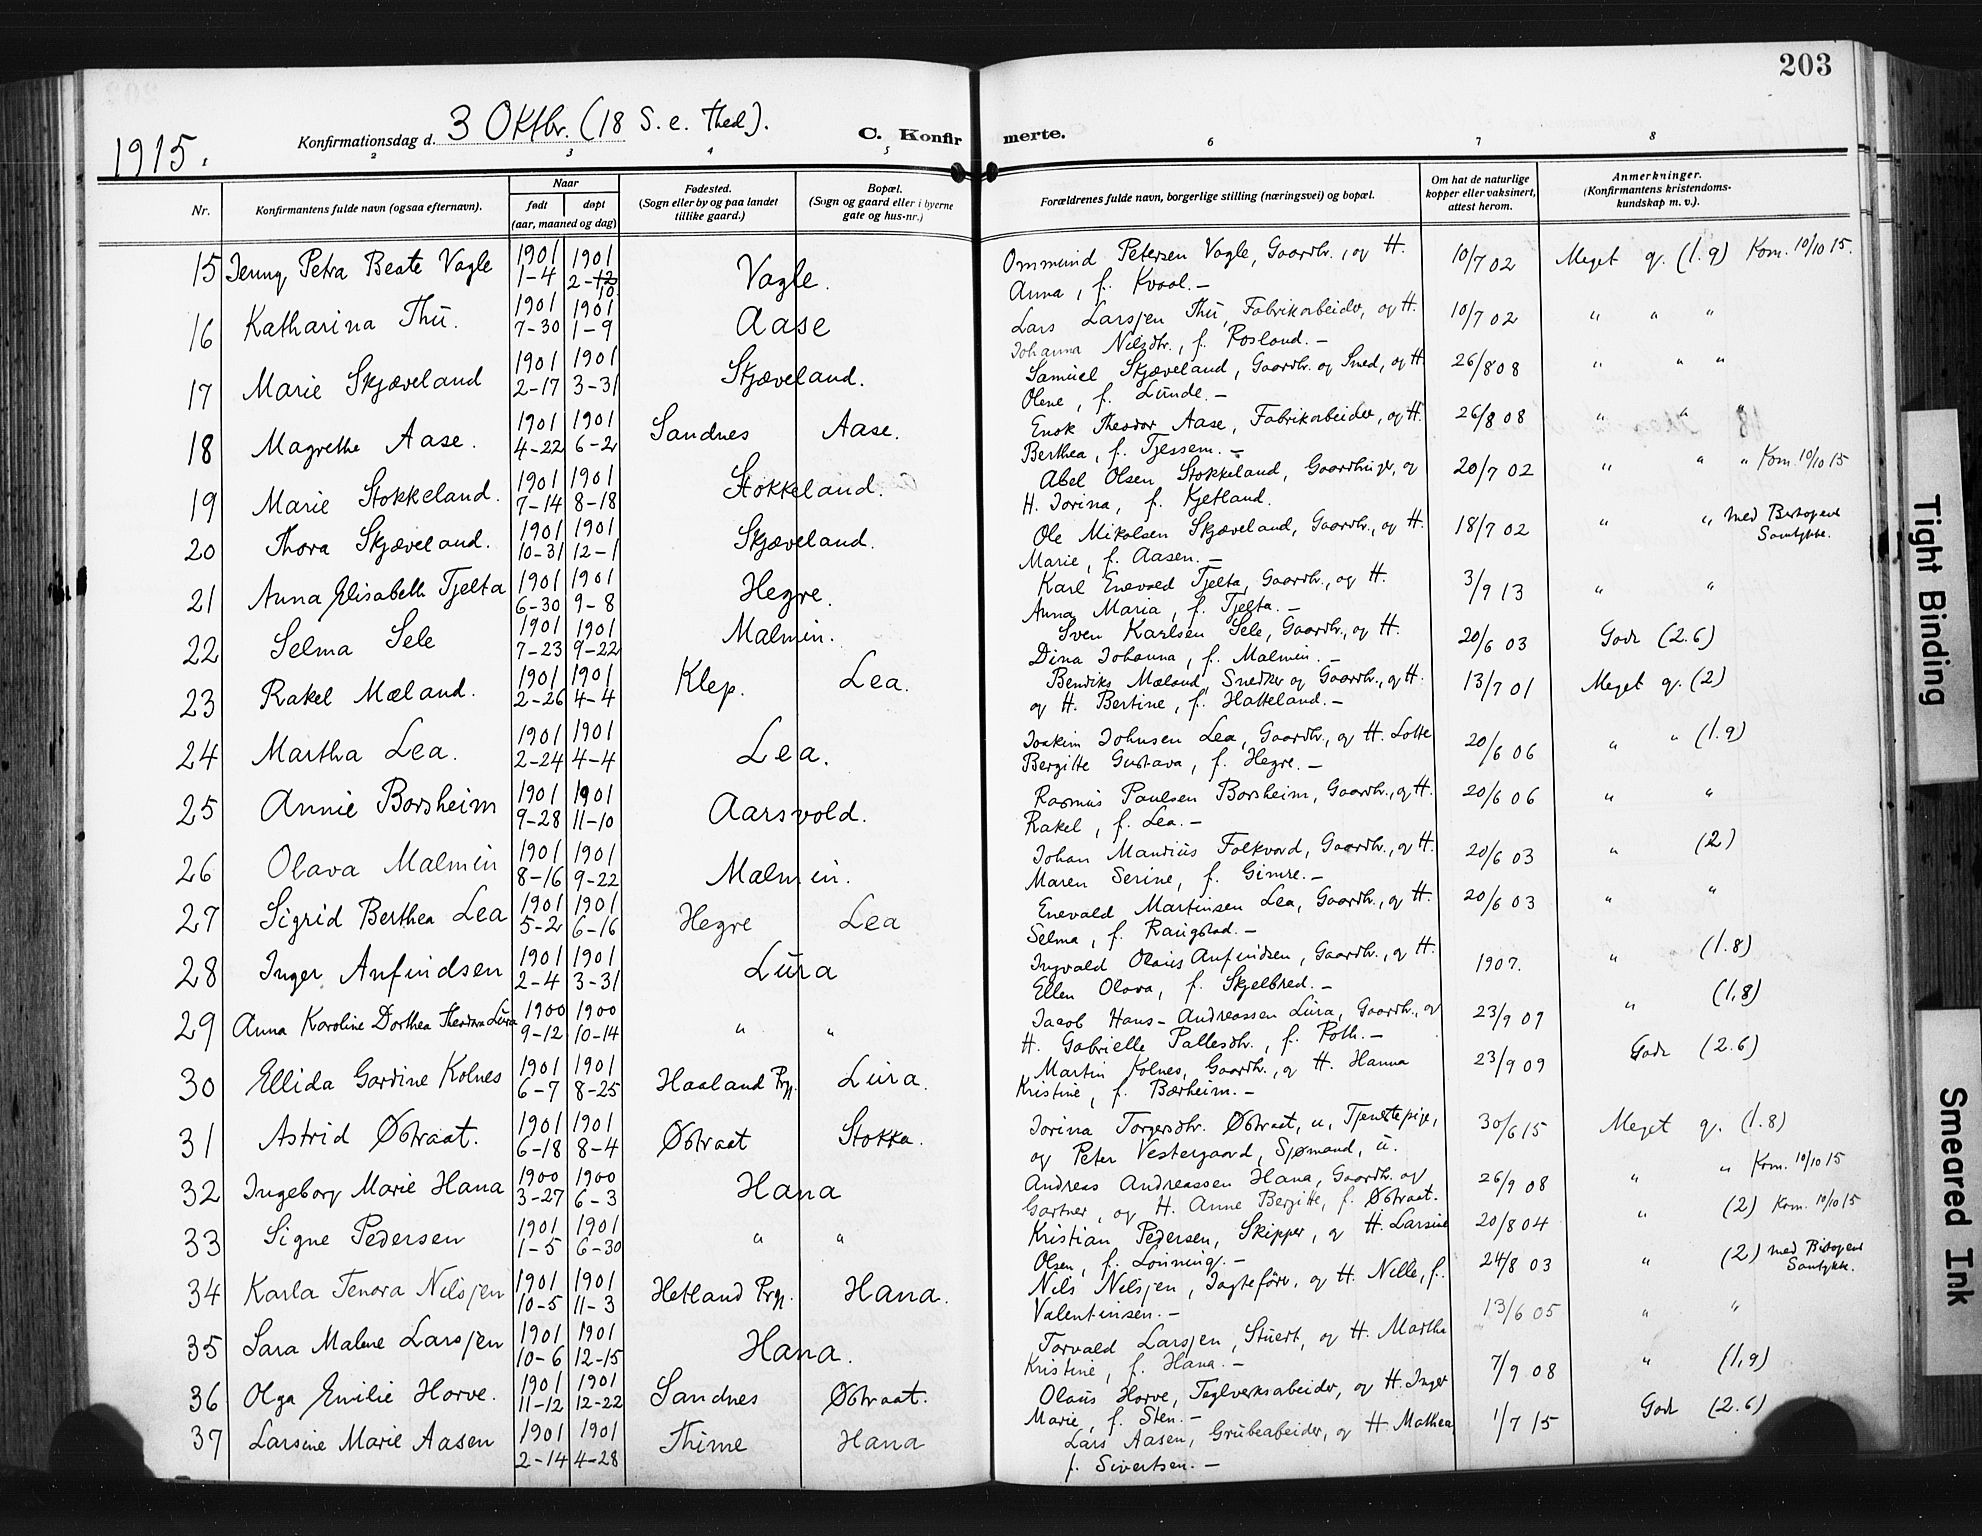 203
1915. Konfirmationsdag d. 3 Oktbr. (18 S. e. Thed). C. Konfirmerte.
2 3 4 5 6 7 8
Nr. Konfirmantens fulde navn (ogsaa efternavn). Naar født døpt (aar, maaned og dag) Fødested. (Sogn eller by og paa landet tillike gaard.) Bopæl. (Sogn og gaard eller i byerne gate og hus-nr.) Forældrenes fulde navn, borgerlige stilling (næringsvei) og bopæl. Om hat de naturlige kopper eller vaksinert, attest herom. Anmerkninger. (Konfirmantens kristendomskundskap m. v.).
15 Jenny Petra Beate Vagle 1901 1-4 1901 2-10 Vagle. Ommund Petersen Vagle, Gaardbr., og H. 10/7 02 Meget g. (1.9) Kom. 10/10 15.
Anna, f. Kvaal. -
16 Katharina Thu. 1901 7-30 1901 1-9 Aase Lars Larsjen Thu, Fabrikarbeider, og H. 10/7 02 " " "
Johanna Nilsdtr., f. Rosland. -
17 Marie Skjæveland 1901 2-17 1901 3-31 Skjæveland. Samuel Skjæveland, Gaardbr. og Smed, og H. 26/8 08 " " "
Olene, f. Lunde. -
18 Magrethe Aase. 1901 4-22 1901 6-2 Sandnes Aase. Enok Theodor Aase, Fabrikarbeider, og H. 26/8 08 " " "
Berthea, f. Tjessem. -
19 Marie Stokkeland. 1901 7-14 1901 8-18 Stokkeland. Abel Olsen Stokkeland, Gaardbruger, og 20/7 02 " " " Kom. 10/10 15
H. Jorina, f. Kjetland.
20 Thora Skjæveland. 1901 10-31 1901 12-1 Skjæveland. Ole Mikalsen Skjæveland, Gaardbr., og H. 18/7 02 " " med Bishopens Samtykke.
Marie, f. Aasen. -
21 Anna Elisabeth Tjelta 1901 6-30 1901 9-8 Hegre. Karl Enevald Tjelta, Gaardbr., og H. 3/9 13 " "
Anna Maria, f. Tjelta. -
22 Selma Sele 1901 7-23 1901 9-22 Malmin. Sven Karlsen Sele, Gaardbr., og H. 20/6 03 Godt (2.6)
Dina Johanna, f. Malmin. -
23 Rakel Mæland. 1901 2-26 1901 4-4 Klep. Lea. Bendiks Mæland, Snedker og Gaardbr., og H. 13/7 01 Meget g. (2)
og H. Bertine, f. Hatteland. -
24 Martha Lea. 1901 2-24 1901 4-4 Lea. Joakim Johnsen Lea, Gaardbr., og H. Lotte 20/6 06 " " (1.9)
Bergitte Gustava, f. Hegre. -
25 Annie Borsheim 1901 9-28 1901 11-10 Aarsvold. Rasmus Paulsen Borsheim, Gaardbr., og H. 20/6 06 " "
Rakel, f. Lea. -
26 Olava Malmin 1901 8-16 1901 9-22 Malmin. Johan Mandius Folkvord, Gaardbr., og H. 20/6 03 " (2)
Maren Serine, f. Gimre. -
27 Sigrid Berthea Lea 1901 5-2 1901 6-16 Hegre Lea Enevald Martinsen Lea, Gaardbr., og H. 20/6 03 " "
Selma, f. Raugstad. -
28 Inger Anfindsen 1901 2-4 1901 3-31 Lura Ingvald Olaus Anfindsen, Gaardbr., og H. 1907. " (1.8)
Ellen Olava, f. Skjelbred. -
29 Anna Karoline Dorthea Theodora Lura 1900 9-12 1900 10-14 " " Jacob Hans-Andreassen Lura, Gaardbr., og 23/9 09 " (1,8)
H. Gabrielle Pallesdtr., f. Roth. -
30 Ellida Gardine Kolnes 1901 6-7 1901 8-25 Haaland Prgj. Lura. Martin Kolnes, Gaardbr., og H. Hanna 23/9 09 Godt (2.6)
Kristine, f. Bærheim. -
31 Astrid Østraat. 1901 6-18 1901 8-4 Østraat Stokka. Jorina Torgersdtr. Østraat, u, Tjenstepige, 30/6 15 Meget g. (1.8)
og Peter Vestergaard, Sjømand, u.
32 Ingeborg Marie Hana 1900 3-27 1900 6-3 Hana Andreas Andreassen Hana, Gaardbr. og 26/9 08 " " Kom. 10/10 15
Gartner, og H. Anne Bergitte, f. Østraat.
33 Signe Pedersen 1901 1-5 1901 6-30 " " Kristian Pedersen, Skipper, og H. Larsine 20/8 04 " (2) Kom. 10/10 15
Olsen, f. Lønning. -
34 Karla Tenora Nilsjen 1901 10-5 1901 11-3 Hetland Prgj. Hana. Nils Nilsjen, Jagtefører, og H. Nille, f. 24/8 03 " (2) med Bishopens Samtykke.
Valentinsen. -
35 Sara Malene Larsjen 1901 10-6 1901 12-15 Hana. Torvald Larsjen, Stuert, og H. Martha 13/6 05 " "
Kristine, f. Hana. -
36 Olga Emilie Horve. 1901 11-12 1901 12-22 Sandnes Østraat. Olaus Horve, Teglverksarbeider, og H. Inger 7/9 08 " (1,9)
Marie, f. Sten. -
37 Larsine Marie Aasen 1901 2-14 1901 4-28 Thime Hana Lars Aasen, Grubearbeider, og H. Mathea 1/7 15 Godt (2.6)
f. Sivertsen. -
Tight Binding
Smeared Ink